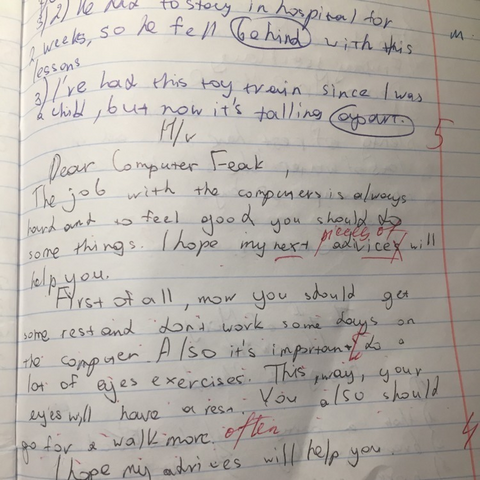 3) 2) He had to stay in hospital for
2 weeks, so he fell behind with this
lessons
3) I've had this toy train since I was
a child, but now it's falling apart.
5
H/v
Dear Computer Freak,
The job with the computers is always
hard and to feel good you should do
some things. I hope my next pieces of advices will
help you.
First of all, now you should get
some rest and don't work some days on
the computer. Also it's important do a
lot of eyes exercises. This, way, your
eyes will have a rest. You also should
go for a walk more. often
4
I hope my advices will help you.